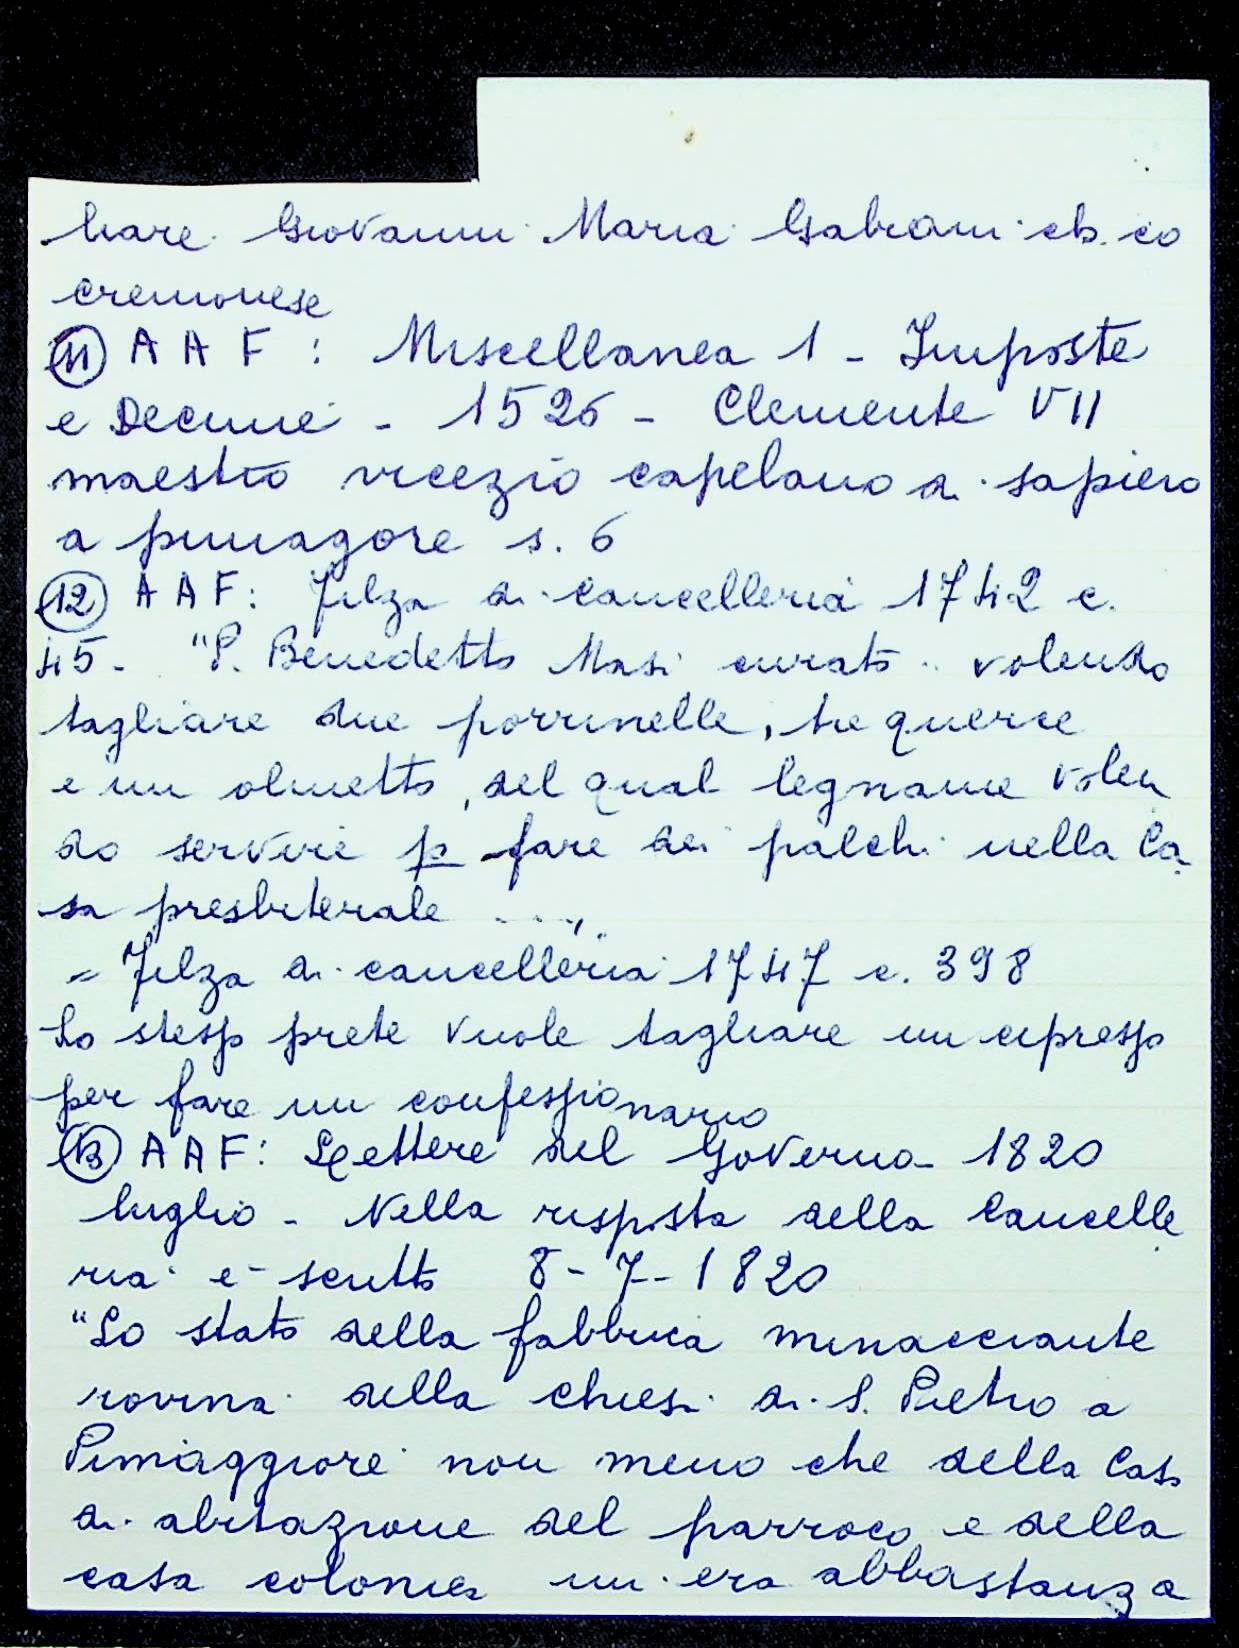 liare Giovanni Maria Gabrani eb. eo
cremonese
(11) A A F : Miscellanea 1 - Imposte
e Decime - 1526 - Clemente VII
maestro vicezio capelano di sapiero
a pimagore s. 6
(12) A A F : Filza di cancelleria 1742 c.
45 - "P. Benedetto Masi curato .. volendo
tagliare due porrinelle, tre querce
e un olmetto, del qual legname volen
do servire p fare dei palchi nella Ca
sa presbiterale ....,,
= Filza di cancelleria 1747 c. 398
Lo stesso prete vuole tagliare un cipresso
per fare un confessionario
(13) A A F : Lettere del Governo - 1820
luglio - Nella risposta della Cancelle
ria è scritto 8 - 7 - 1820
"Lo stato della fabbrica minacciante
rovina della chiesa di S. Pietro a
Pimaggiore non meno che della Casa
di abitazione del parroco e della
casa colonica mi era abbastanza